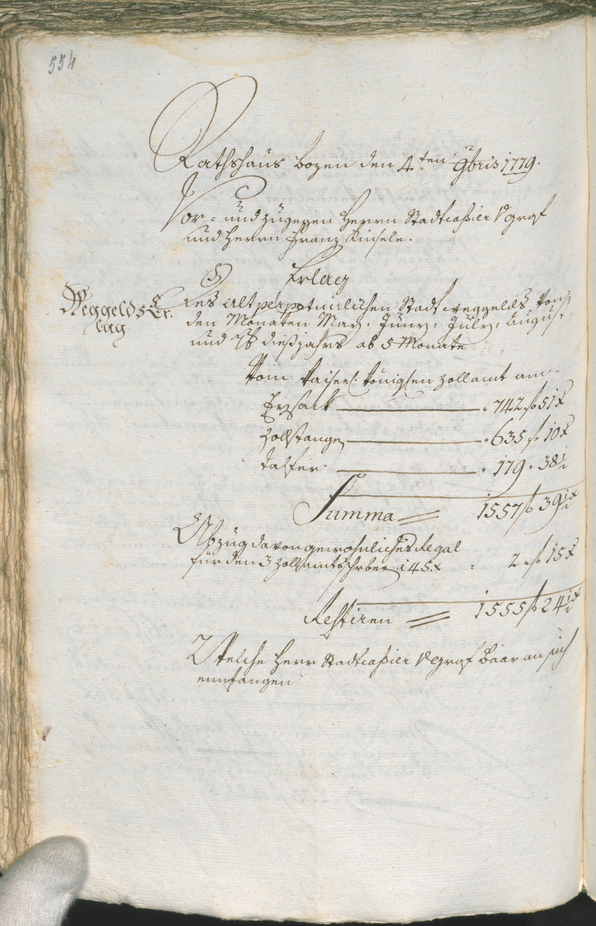 554
Rathshaus bozen den 4.ten 9bris 1779.
Vor= und zugegen Herrn Stadtcaßier Vgraf
und Herrn Franz Kinsele.
Erlag
Weggelds Er=
lag
Des alt perpetuirlichen Stadt weggelds von
den Monaten May, Juny, July, August,
und 7b dießjahrs als 5 Monate
Vom Kaiserl. Königlen Zollamt am
Eysack 742 f 51 x
Zollstange 635 f 10 x
Talfer 179 . 38½
Summa 1557 f 39½ x
Abzug davon gewohnliches Regal
für den 3 Zollamtschrber a 45 x 2 f 15 x
Restiren 1555 f 24½ x
Welche Herr Stadtcaßier Vgraf baar an sich
empfangen